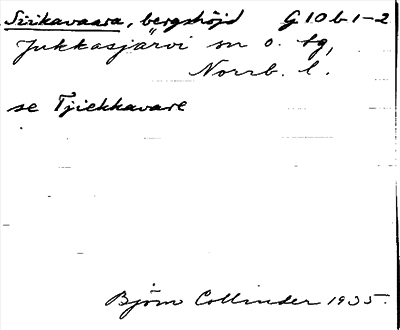 Siikavaara, bergshöjd G 10 b 1-2
Jukkasjärvi sn o. tg,
Norrb. l.
se Tjiekkavare
Björn Collinder 1935.